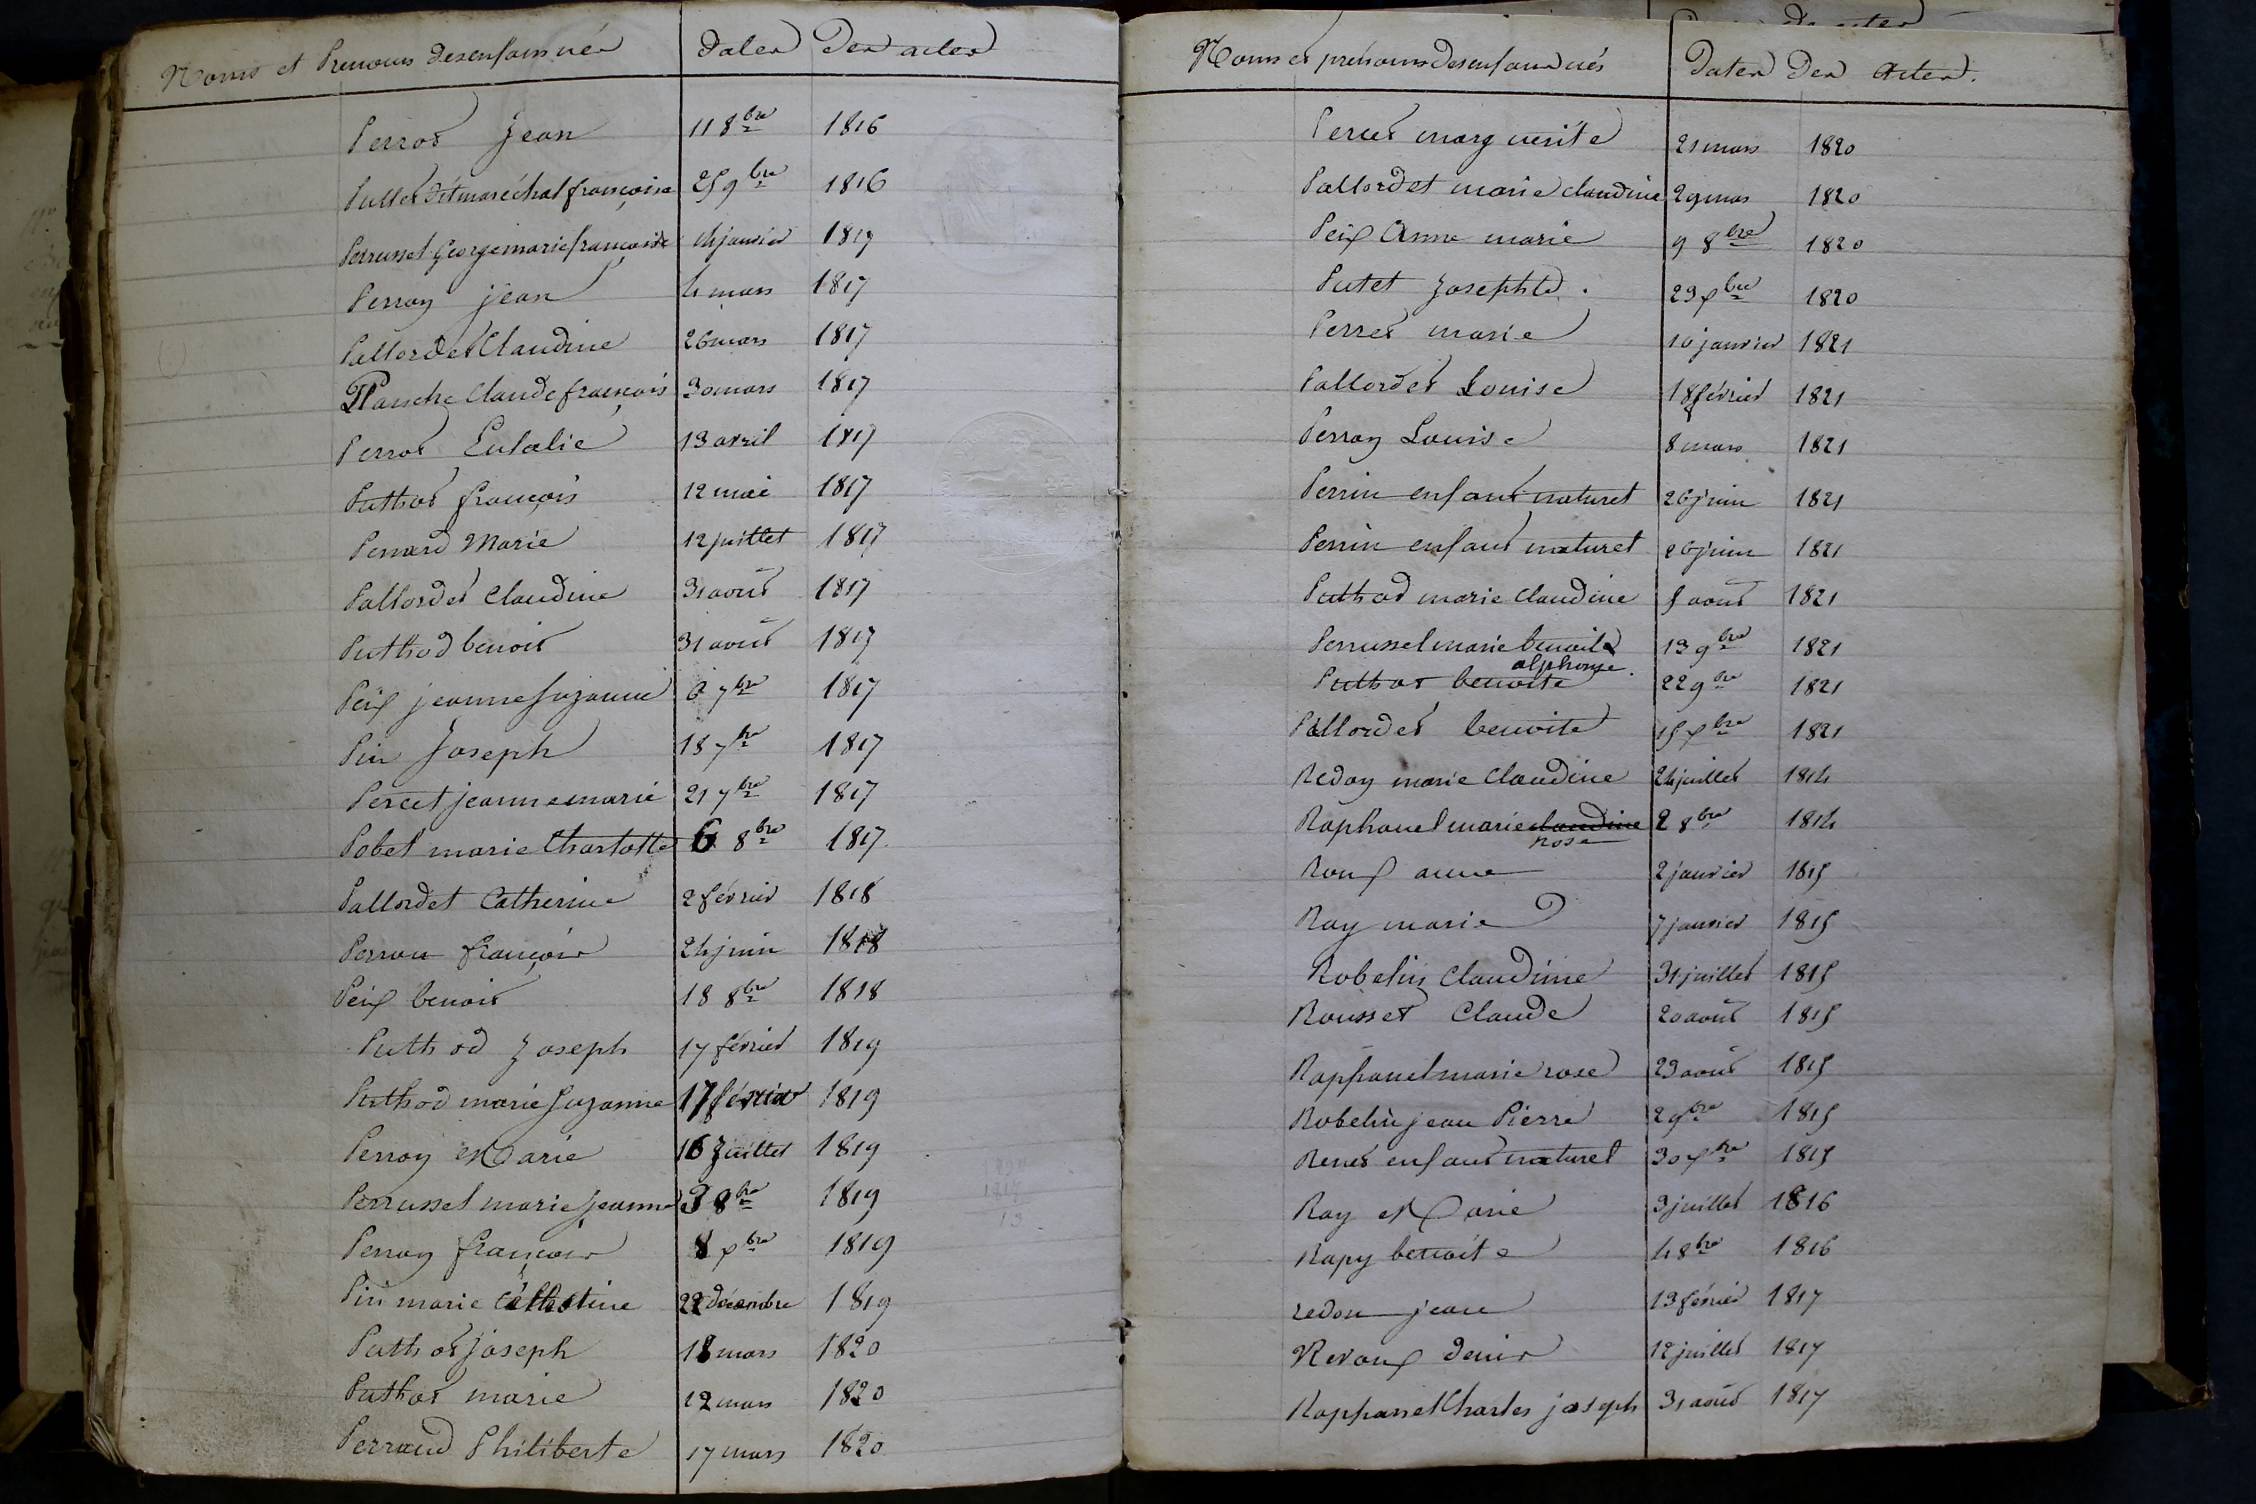 Noms et Prenoms des enfans nés Dates Des actes
Perrot Jean 11 8bre 1816
Pullet dit maréchal françoise 25 9bre 1816
Perrussel George marie françoise 14 janvier 1817
Perroy jean 4 mars 1817
Pallordet Claudine 26 mars 1817
Planche Claude françois 30 mars 1817
Perrot Eulalie 13 avril 1817
Puthot françois 12 mai 1817
Penard Marie 12 juillet 1817
Pallordet Claudine 31 août 1817
Puthod benoit 31 août 1817
Peix jeanne suzanne 6 7bre 1817
Pin Joseph 18 7bre 1817
Percet jeanne marie 21 7bre 1817
Pobel marie Charlotte 6 8bre 1817
Pallordet Catherine 2 février 1818
Perrou françois 24 juin 1818
Peix benoit 18 8bre 1818
Puthod Joseph 17 février 1819
Puthod marie suzanne 17 février 1819
Perroy Marie 16 Juillet 1819
Perrussel marie jeanne 3 8bre 1819
Perroy françois 8 xbre 1819
Pin marie Célestine 22 décembre 1819
Puthot joseph 18 mars 1820
Puthot marie 12 mars 1820
Perraud Philiberte 17 mars 1820
Noms et prénoms des enfans nés Dates Des Actes.
Percet marguerite 21 mars 1820
Pallordet marie claudine 29 mars 1820
Peix Anne marie 9 8bre 1820
Putet Josephte. 23 xbre 1820
Perret marie 10 janvier 1821
Pallordet Louise 18 février 1821
Perroy Louise 8 mars 1821
Perrin enfant naturel 26 juin 1821
Perrin enfant naturel 26 juin 1821
Puthod marie claudine 5 août 1821
Perrussel marie benoite 13 9bre 1821
alphonse.
Puthot benoite 22 9bre 1821
Pallordet benoite 15 xbre 1821
Redoy marie Claudine 24 juillet 1814
Raphanel marie claudine 2 8bre 1814
rose
Roux anne 2 janvier 1815
Ray marie 7 janvier 1815
Robelin Claudine 31 juillet 1815
Rousset Claude 20 août 1815
Rapfanel marie rose 23 août 1815
Robelin jean Pierre 2 9bre 1815
Renet enfant naturel 30 xbre 1815
Ray Marie 3 juillet 1816
Rapy benoite 4 8bre 1816
redon jean 13 février 1817
Revoux denis 12 juillet 1817
Rapfanel Charles joseph 31 août 1817